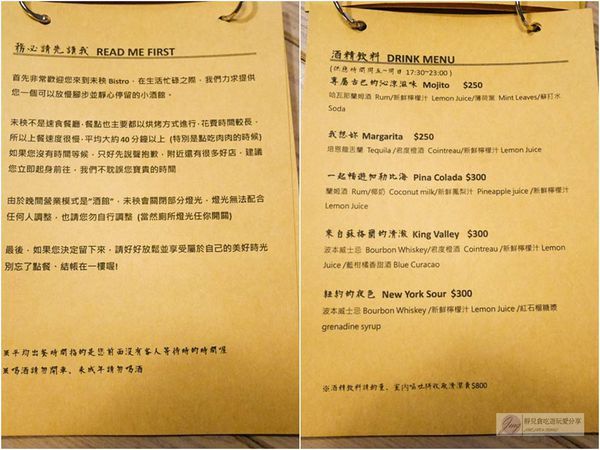 務必請先讀我 READ ME FIRST
首先非常歡迎您來到禾秧 Bistro，在生活忙碌之際，我們力求提供
您一個可以放慢腳步並靜心停留的小酒館。
禾秧不是速食餐廳，餐點也主要都以烘烤方式進行，花費時間較長，
所以上餐速度很慢，平均大約 40 分鐘以上 (特別是點吃肉肉的時候)
如果您沒有時間等候，只好先說聲抱歉，附近還有很多好店，建議
您立即起身前往，我們不耽誤您寶貴的時間
由於晚間營業模式是"酒館"，禾秧會關閉部分燈光，燈光無法配合
任何人調整，也請您勿自行調整 (當然廁所燈光任你開關)
最後，如果您決定留下來，請好好放鬆並享受屬於自己的美好時光
別忘了點餐、結帳在一樓喔!
※平均出餐時間指的是您前面沒有客人等待時的時間喔
※喝酒請勿開車、未成年請勿喝酒
酒精飲料 DRINK MENU
(供應時間周五~周日 17:30~23:00 )
專屬古巴的沁涼滋味 Mojito $250
哈瓦那蘭姆酒 Rum/新鮮檸檬汁 Lemon Juice/薄荷葉 Mint Leaves/蘇打水
Soda
我想妳 Margarita $250
培恩龍舌蘭 Tequila /君度橙酒 Cointreau/新鮮檸檬汁 Lemon Juice
一起暢遊加勒比海 Pina Colada $300
蘭姆酒 Rum/椰奶 Coconut milk/新鮮鳳梨汁 Pineapple juice /新鮮檸檬汁
Lemon Juice
來自蘇格蘭的清澈 King Valley $300
波本威士忌 Bourbon Whiskey/君度橙酒 Cointreau /新鮮檸檬汁 Lemon
Juice /藍柑橘香甜酒 Blue Curacao
紐約的夜色 New York Sour $300
波本威士忌 Bourbon Whiskey /新鮮檸檬汁 Lemon Juice /紅石榴糖漿
grenadine syrup
※酒精飲料請酌量、室內嘔吐將收取清潔費$800
靜兒貪吃遊玩愛分享